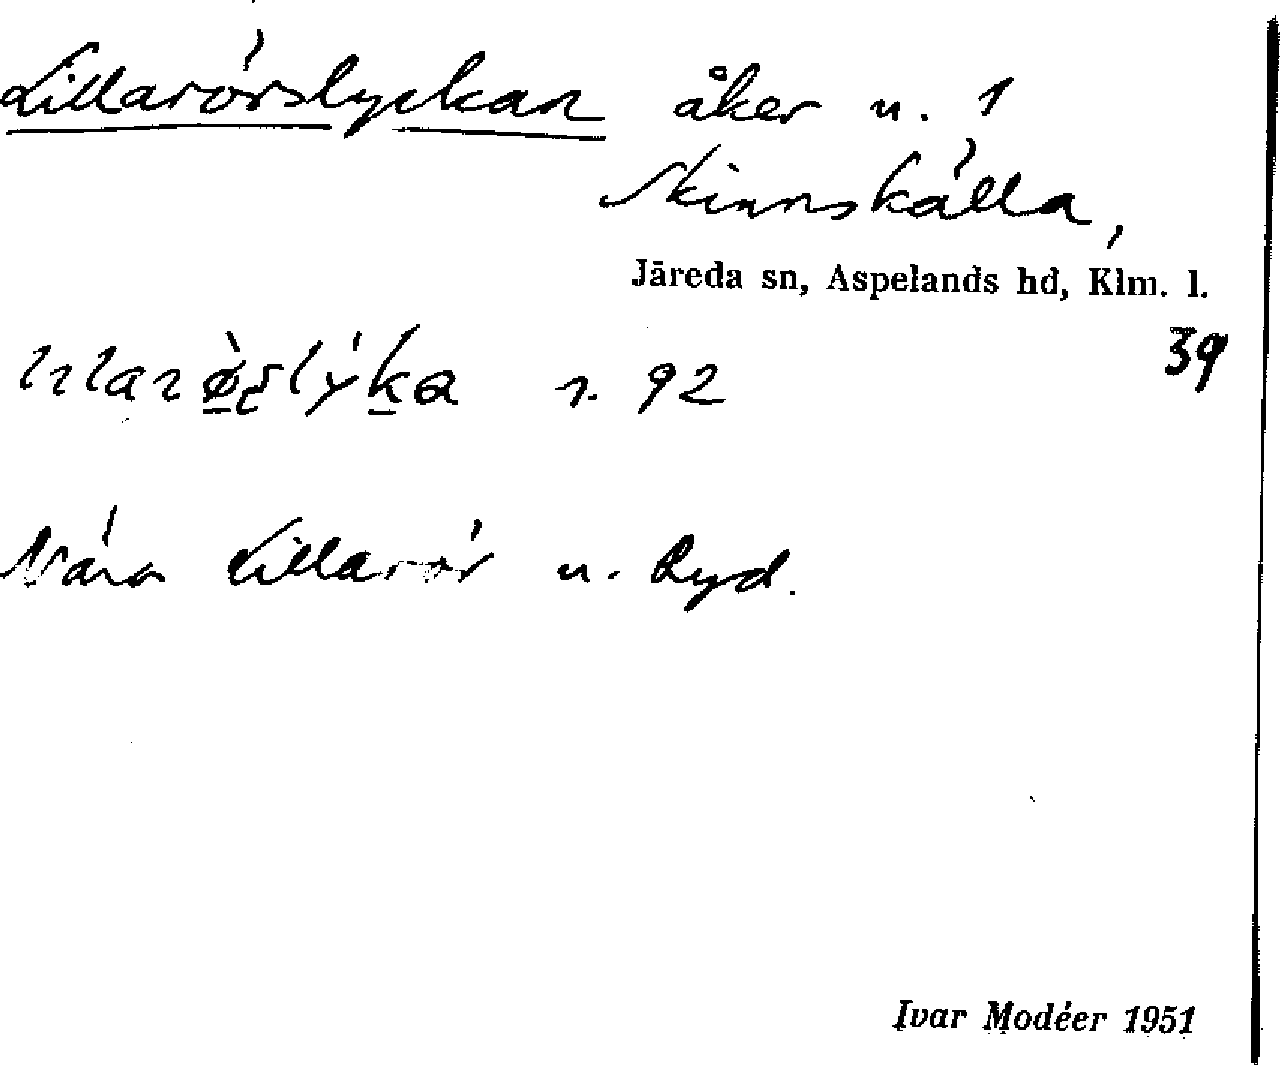 Lillarörslyckan åker u. 1
Skinnskälla,
Järeda sn, Aspelands hd, Klm. l.
39
r. 92
Nära Lillarör u. Ryd.
Ivar Modéer 1951